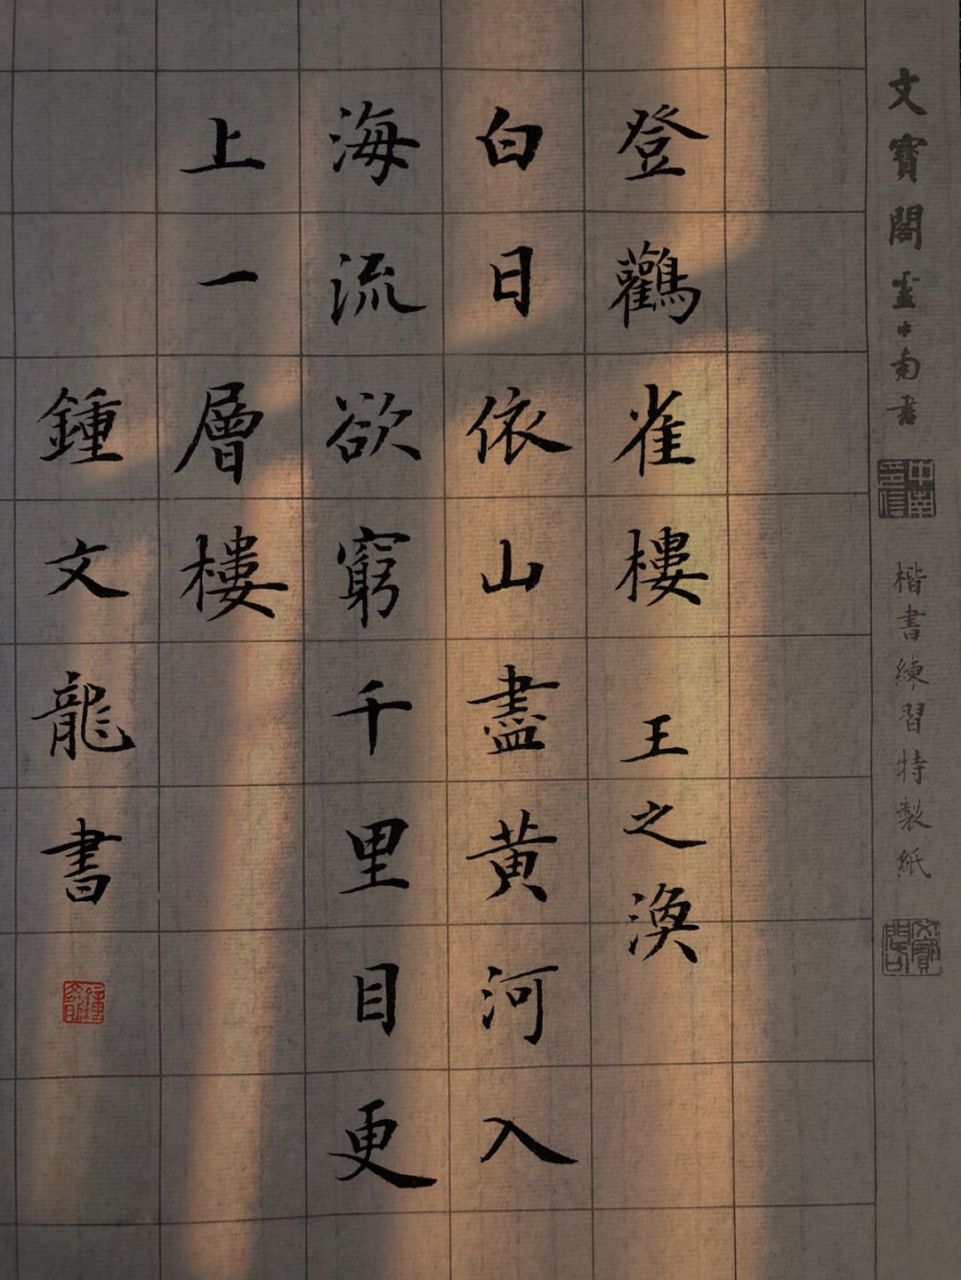 文寶閣盧中南書
中南
印信
楷書練習特製紙
登鸛雀樓王之渙
白日依山盡黄河入
海流欲窮千里目更
上一層樓
鍾文龍書